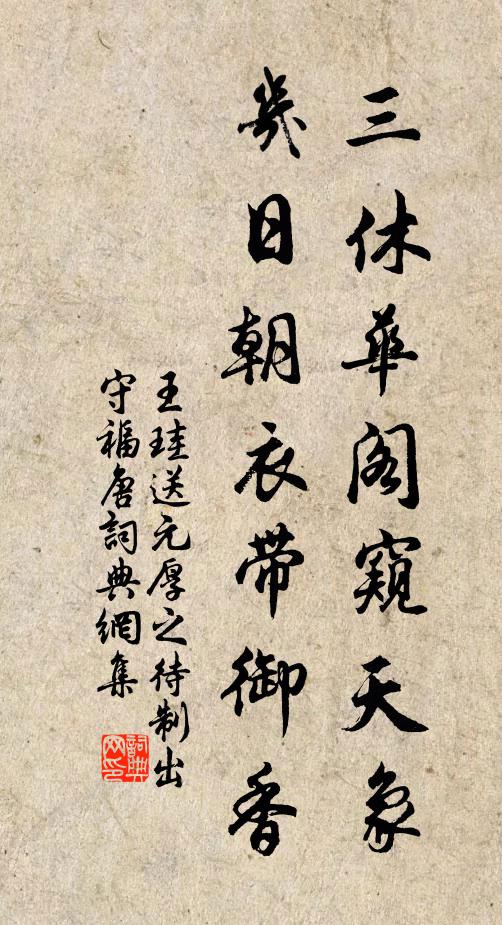 三休華閣窺天象
幾日朝衣帶御香
王珪送元厚之待制出
守福唐詞典網集
詞典网印